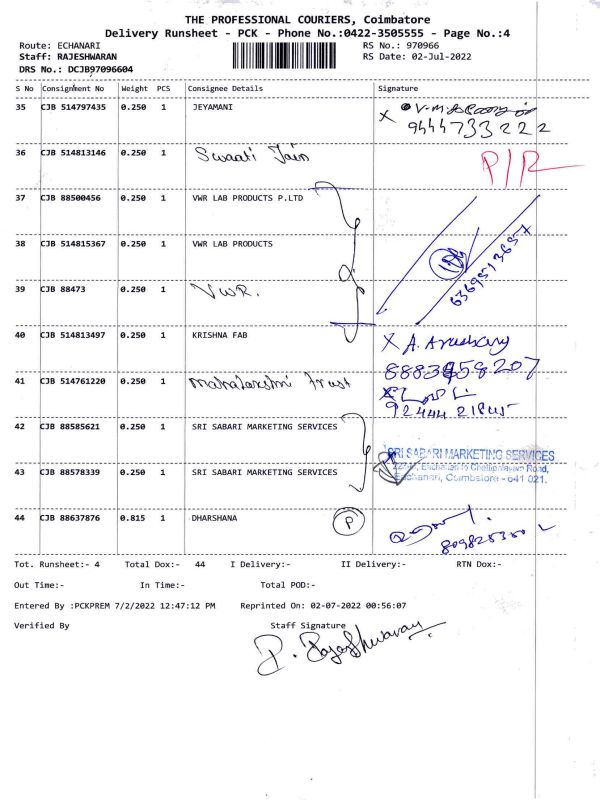 THE PROFESSIONAL COURIERS, Coimbatore
Delivery Runsheet - PCK - Phone No.:0422-3505555 - Page No.:4
Route: ECHANARI RS No.: 970966
Staff: RAJESHWARAN RS Date: 02-Jul-2022
DRS No.: DCJB97096604
S No Consignment No Weight PCS Consignee Details Signature
35 CJB 514797435 0.250 1 JEYAMANI X
9444733222
36 CJB 514813146 0.250 1 Swaati Jain P/R
37 CJB 88500456 0.250 1 VWR LAB PRODUCTS P.LTD
38 CJB 514815367 0.250 1 VWR LAB PRODUCTS
39 CJB 88473 0.250 1 VWR.
6369513657
40 CJB 514813497 0.250 1 KRISHNA FAB X A.
8883458207
41 CJB 514761220 0.250 1 Mahalakshmi Trust
42 CJB 88585621 0.250 1 SRI SABARI MARKETING SERVICES
SRI SABARI MARKETING SERVICES
Echanari to Chettipalayam Road,
43 CJB 88578339 0.250 1 SRI SABARI MARKETING SERVICES Eachanari, Coimbatore - 641 021.
44 CJB 88637876 0.815 1 DHARSHANA P
Tot. Runsheet:- 4 Total Dox:- 44 I Delivery:- II Delivery:- RTN Dox:-
Out Time:- In Time:- Total POD:-
Entered By :PCKPREM 7/2/2022 12:47:12 PM Reprinted On: 02-07-2022 00:56:07
Verified By Staff Signature
P. Rajeshwaran